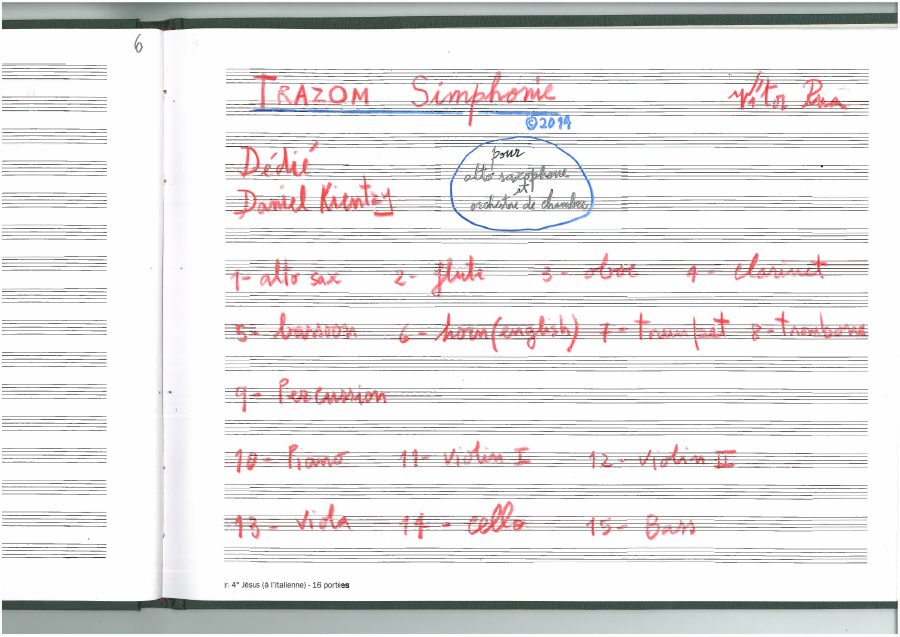 6
TRAZOM Simphonie
©2019
Dédié
Daniel Kientzy
pour
alto saxophone
et
orchestre de chambre
1- alto sax 2- flute 3- oboe 4- clarinet
5- bassoon 6- horn (english) 7- trumpet 8- trombone
9- Percussion
10- Piano 11- Violin I 12- violin II
13- viola 14- cello 15- Bass
r. 4° Jésus (à l'italienne) - 16 portées